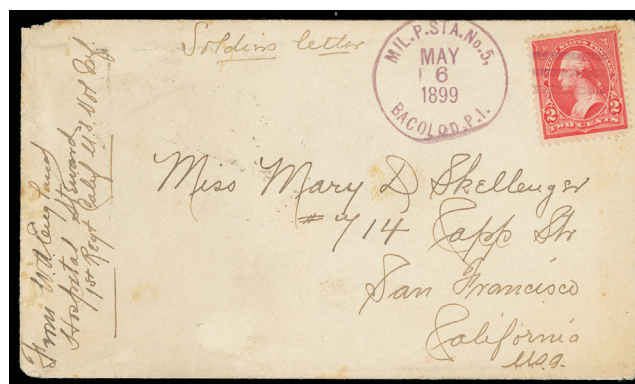 Soldiers letter
MIL. P. STA. No. 5,
MAY
6
1899
BACOLOD, P.I.
UNITED STATES POSTAGE
2 2
TWO CENTS
Miss Mary D Skellenger
#714 Capp Str
San Francisco
California
U.S.A.
From W. A. England
Hospital Steward
1st Regt Calif U.S. Vol Inf.